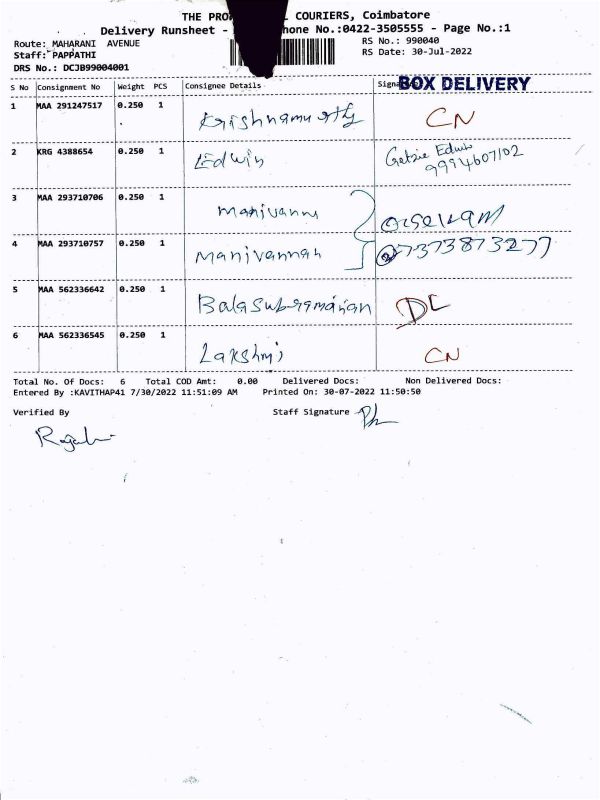 THE PRO COURIERS, Coimbatore
Delivery Runsheet - hone No.:0422-3505555 - Page No.:1
Route: MAHARANI AVENUE RS No.: 990040
Staff: PAPPATHI RS Date: 30-Jul-2022
DRS No.: DCJB99004001
S No Consignment No Weight PCS Consignee Details Signa BOX DELIVERY
1 MAA 291247517 0.250 1 Krishnamurthy CN
2 KRG 4388654 0.250 1 Edwin Getzie Edwin
9994607102
3 MAA 293710706 0.250 1 Manivannan
4 MAA 293710757 0.250 1 Manivannan 7373873277
5 MAA 562336642 0.250 1 Balasubramanian DL
6 MAA 562336545 0.250 1 Lakshmi CN
Total No. Of Docs: 6 Total COD Amt: 0.00 Delivered Docs: Non Delivered Docs:
Entered By :KAVITHAP41 7/30/2022 11:51:09 AM Printed On: 30-07-2022 11:50:50
Verified By Staff Signature